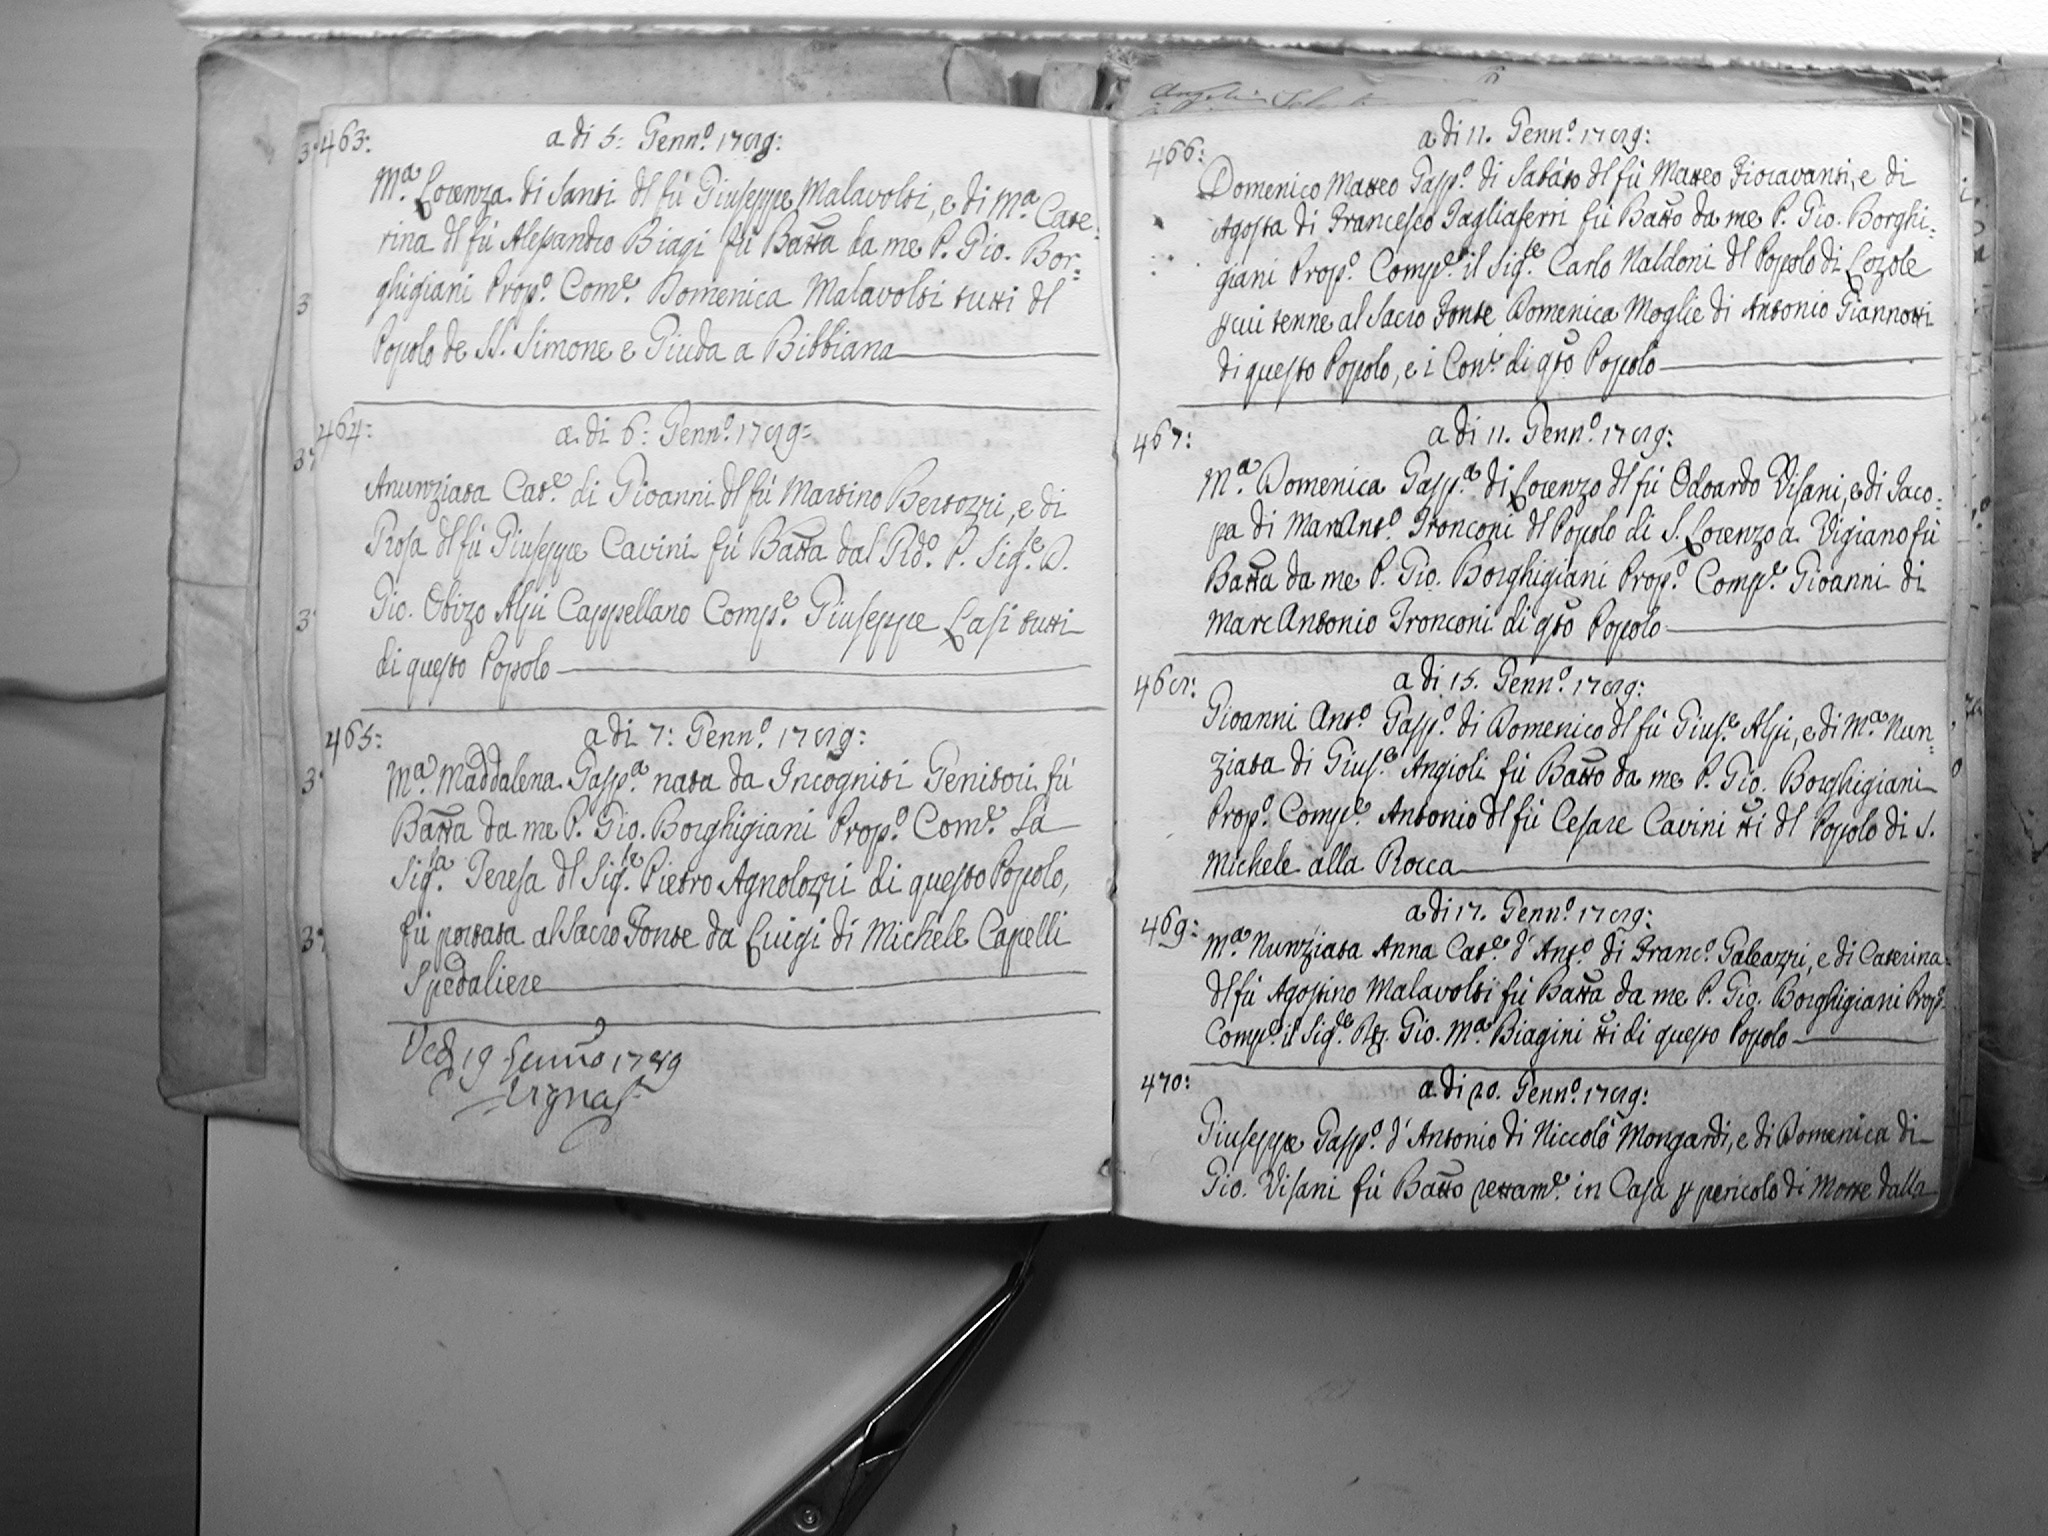 463:
a di 5: Genn.º 1789:
M.ª Lorenza di Santi dl fù Giuseppe Malavolti, e di M.ª Cate:
rina dl fù Alessandro Biagi fù Batta da me P. Gio. Bor:
ghigiani Prop.º Com.e Domenica Malavolti tutti dl
Popolo de SS. Simone e Giuda a Bibbiana
464:
a di 6: Genn.º 1789:
Anunziata Cat.e di Giovanni dl fù Martino Bertozzi, e di
Rosa dl fù Giuseppe Cavini fù Batta dal Rdo. P. Sig.e D.
Gio. Obizo Alpi Cappellano Comp.e Giuseppe Lasi tutti
di questo Popolo
465:
a di 7: Genn.º 1789:
M.ª Maddalena Gasp.ª nata da Incogniti Genitori fù
Batta da me P. Gio. Borghigiani Prop.º Com.e La
Sig.ra Teresa dl Sig.e Pietro Agnolozzi di questo Popolo,
fù portata al Sacro Fonte da Luigi di Michele Capelli
Spedaliere
19 Genn.º 1789
466:
a di 11. Genn.º 1789:
Domenico Matteo Gasp.º di Sabato dl fù Matteo Fioravanti, e di
Agosta di Francesco Tagliaferri fù Batto da me P. Gio. Borghi:
giani Prop.º Comp.e il Sig.e Carlo Naldoni dl Popolo di Lozole
p cui tenne al Sacro Fonte Domenica Moglie di Antonio Giannotti
di questo Popolo, e i Con.e di qto Popolo
467:
a di 11. Genn.º 1789:
M.ª Domenica Gasp.ª di Lorenzo dl fù Odoardo Visani, e di Iaco:
pa di MarcAnt.º Tronconi dl Popolo di S. Lorenzo a Vigiano fù
Batta da me P. Gio. Borghigiani Prop.º Comp.e Giovanni di
MarcAntonio Tronconi di qto Popolo
468:
a di 15. Genn.º 1789:
Giovanni Ant.º Gasp.º di Domenico dl fù Gius.e Alpi, e di M.ª Nun:
ziata di Gius.e Angioli fù Batto da me P. Gio. Borghigiani
Prop.º Comp.e Antonio dl fù Cesare Cavini tti dl Popolo di S.
Michele alla Rocca
469:
a di 17. Genn.º 1789:
M.ª Nunziata Anna Cat.e d'Ant.º di Franc.º Galeazzi, e di Caterina
dl fù Agostino Malavolti fù Batta da me P. Gio. Borghigiani Prop.º
Comp.e il Sig.e Gio. M.ª Biagini tti di questo Popolo
470:
a di 20. Genn.º 1789:
Giuseppe Gasp.º d'Antonio di Niccolò Mongardi, e di Domenica di
Gio. Visani fù Batto rettam.e in Casa p pericolo di Morte dalla